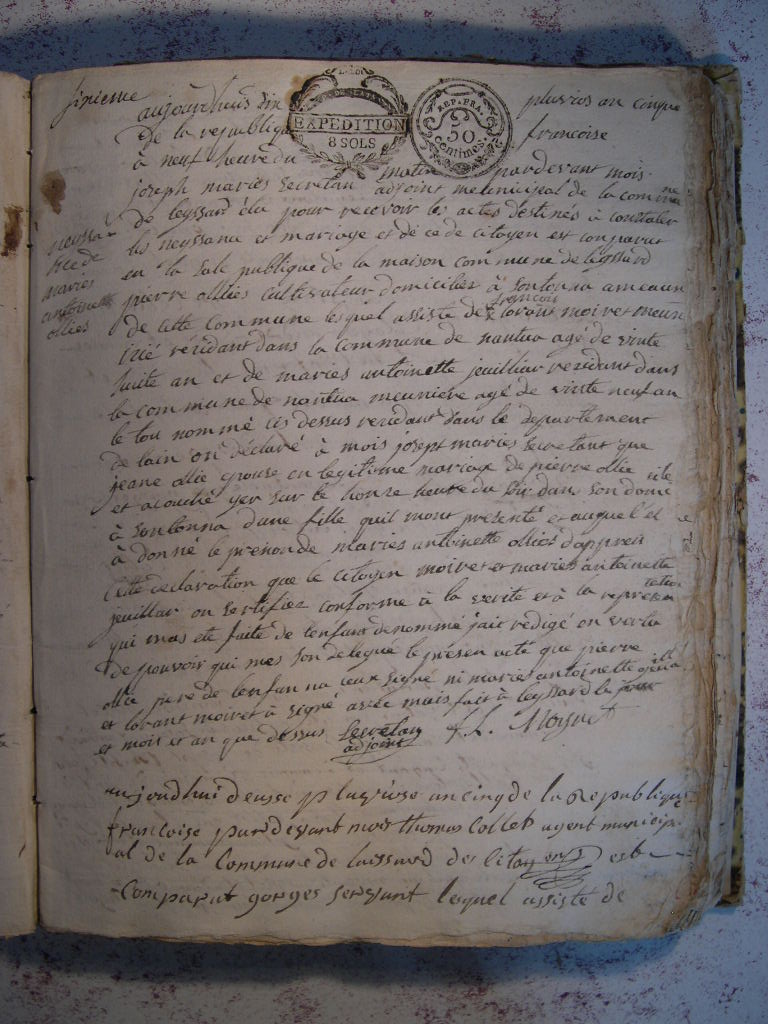 sixieme
aujourdhuis
plusvios an cinque
de la republique
francoise
LA LOI
EXPEDITION
8 SOLS
REP. FRA.
50
centimes
à neuf heure du matin pardevant mois
joseph maries secretan adjoint de la commune
de leyssard élu pour recevoir les actes destines à constater
les neyssance et mariage et de ce de citoyen est conparut
en la sale publique de la maison commune de leyssard
neyssa
nce de
maries
antoinette
ollies
pierre ollies cultivateur domicilier à sontonna ameaux
de cette commune lesquel assiste de francois lorant moiret meun
irié résidant dans la commune de nantua agé de vinte
huite an et de maries antoinette jeuilliar residant dans
la commune de nantua meuniere agé de vinte neuf an
le tou nommé cis dessus residant dans le departement
de lain on déclaré à mois josept maries secretant que
jeane ollie epouse en legitime mariage de pierre ollie
et acouché yer sur le honze heure du soir dans son domi
cile
à sontonna dune fille quil mont presenté et auquel il
à donné le prenon de maries antoinette ollies dapprei
cette declaration que le citoyen moiret et maries antoinette
jeuillar on sertifiez conforme à la verite et à la represen
tation
qui mas eté faite de lenfans denommé jait redigé en vertu
de pouvoir qui mes son delegué le presen acté que pierre
ollie pere de lenfan na ceux signé ni maries antoinette
et lorant moiret à signé avec mois fait à leyssard le jour
et mois et an que dessus
Secretan
adjoint
f. l. Moyret
aujourdhui deusse pluviose an cinq de la Republique
francoise pardevant moi thomas Collet agent municip
al de la Commune de laissard des citoyens est
Comparut gorges servant lequel assiste de